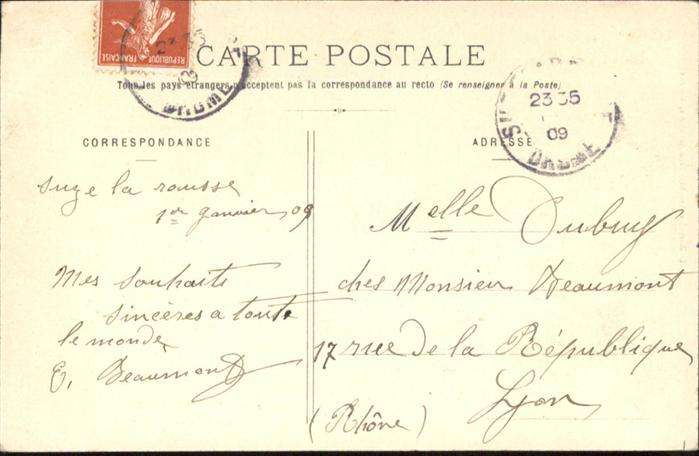 RÉPUBLIQUE FRANÇAISE
CARTE POSTALE
Tous les pays étrangers n'acceptent pas la correspondance au recto (Se renseigner à la Poste)
23 35
09
DROME
CORRESPONDANCE
ADRESSE
Suze la rousse
1er Janvier 09
Mes souhaits
sincères a toute
le monde
E, Deaumont
Melle Dubuy
ches Monsieur Deaumont
17 rue de la République
Lyon
(Rhône)